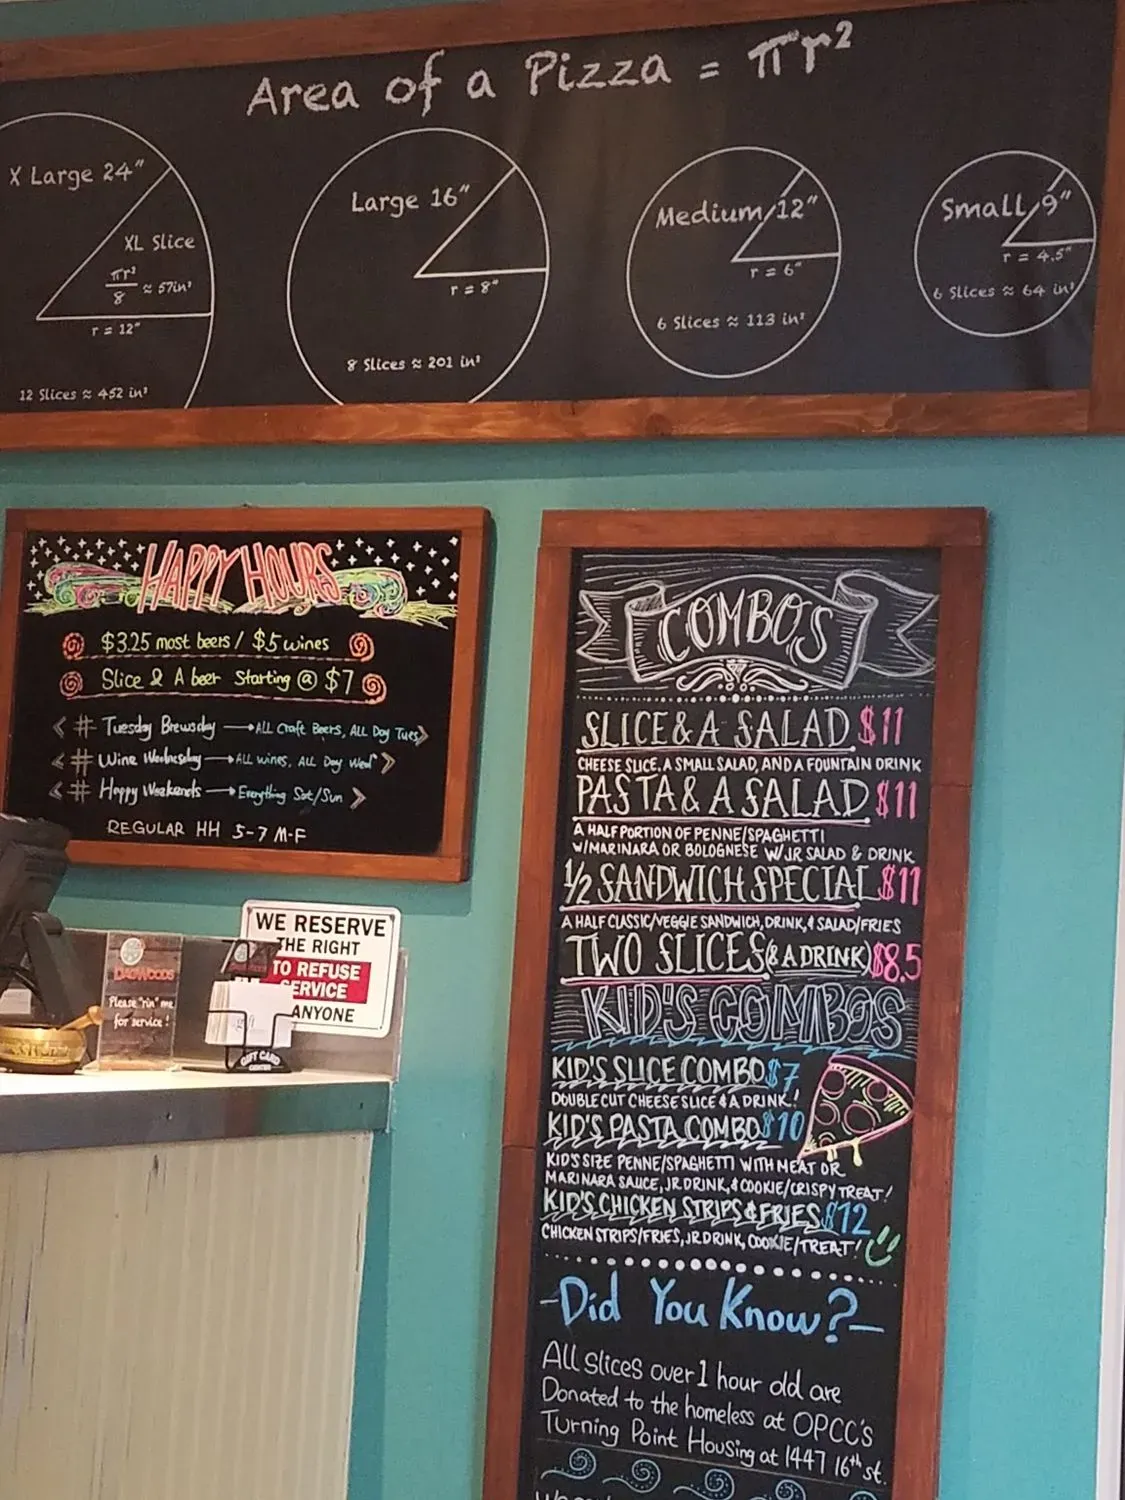 Area of a Pizza = πr²
X Large 24"
XL Slice
πr²
8
≈ 57in²
r = 12"
12 Slices ≈ 452 in²
Large 16"
r = 8"
8 Slices ≈ 201 in²
Medium 12"
r = 6"
6 Slices ≈ 113 in²
Small 9"
r = 4.5"
6 Slices ≈ 64 in²
HAPPY HOURS
$3.25 most beers / $5 wines
Slice & A beer Starting @ $7
< # Tuesday Brewsday → ALL Craft Beers, ALL Day Tues >
< # Wine Wednesday → ALL wines, ALL Day Wed >
< # Happy Weekends → Everything Sat/Sun >
REGULAR HH 5-7 M-F
WE RESERVE
THE RIGHT
TO REFUSE
SERVICE
ANYONE
DAGWOODS
Please "rin" me
for service!
GIFT CARD
COMBOS
SLICE & A SALAD $11
CHEESE SLICE, A SMALL SALAD, AND A FOUNTAIN DRINK
PASTA & A SALAD $11
A HALF PORTION OF PENNE/SPAGHETTI
W/MARINARA OR BOLOGNESE W/JR SALAD & DRINK
1/2 SANDWICH SPECIAL $11
A HALF CLASSIC/VEGGIE SANDWICH, DRINK, & SALAD/FRIES
TWO SLICES (& A DRINK) $8.5
KID'S COMBOS
KID'S SLICE COMBO $7
DOUBLE CUT CHEESE SLICE & A DRINK!
KID'S PASTA COMBO $10
KID'S SIZE PENNE/SPAGHETTI WITH MEAT OR
MARINARA SAUCE, JR DRINK, & COOKIE/CRISPY TREAT!
KID'S CHICKEN STRIPS & FRIES $12
CHICKEN STRIPS/FRIES, JR DRINK, COOKIE/TREAT!
-Did You Know?-
All slices over 1 hour old are
Donated to the homeless at OPCC's
Turning Point Housing at 1447 16th st.